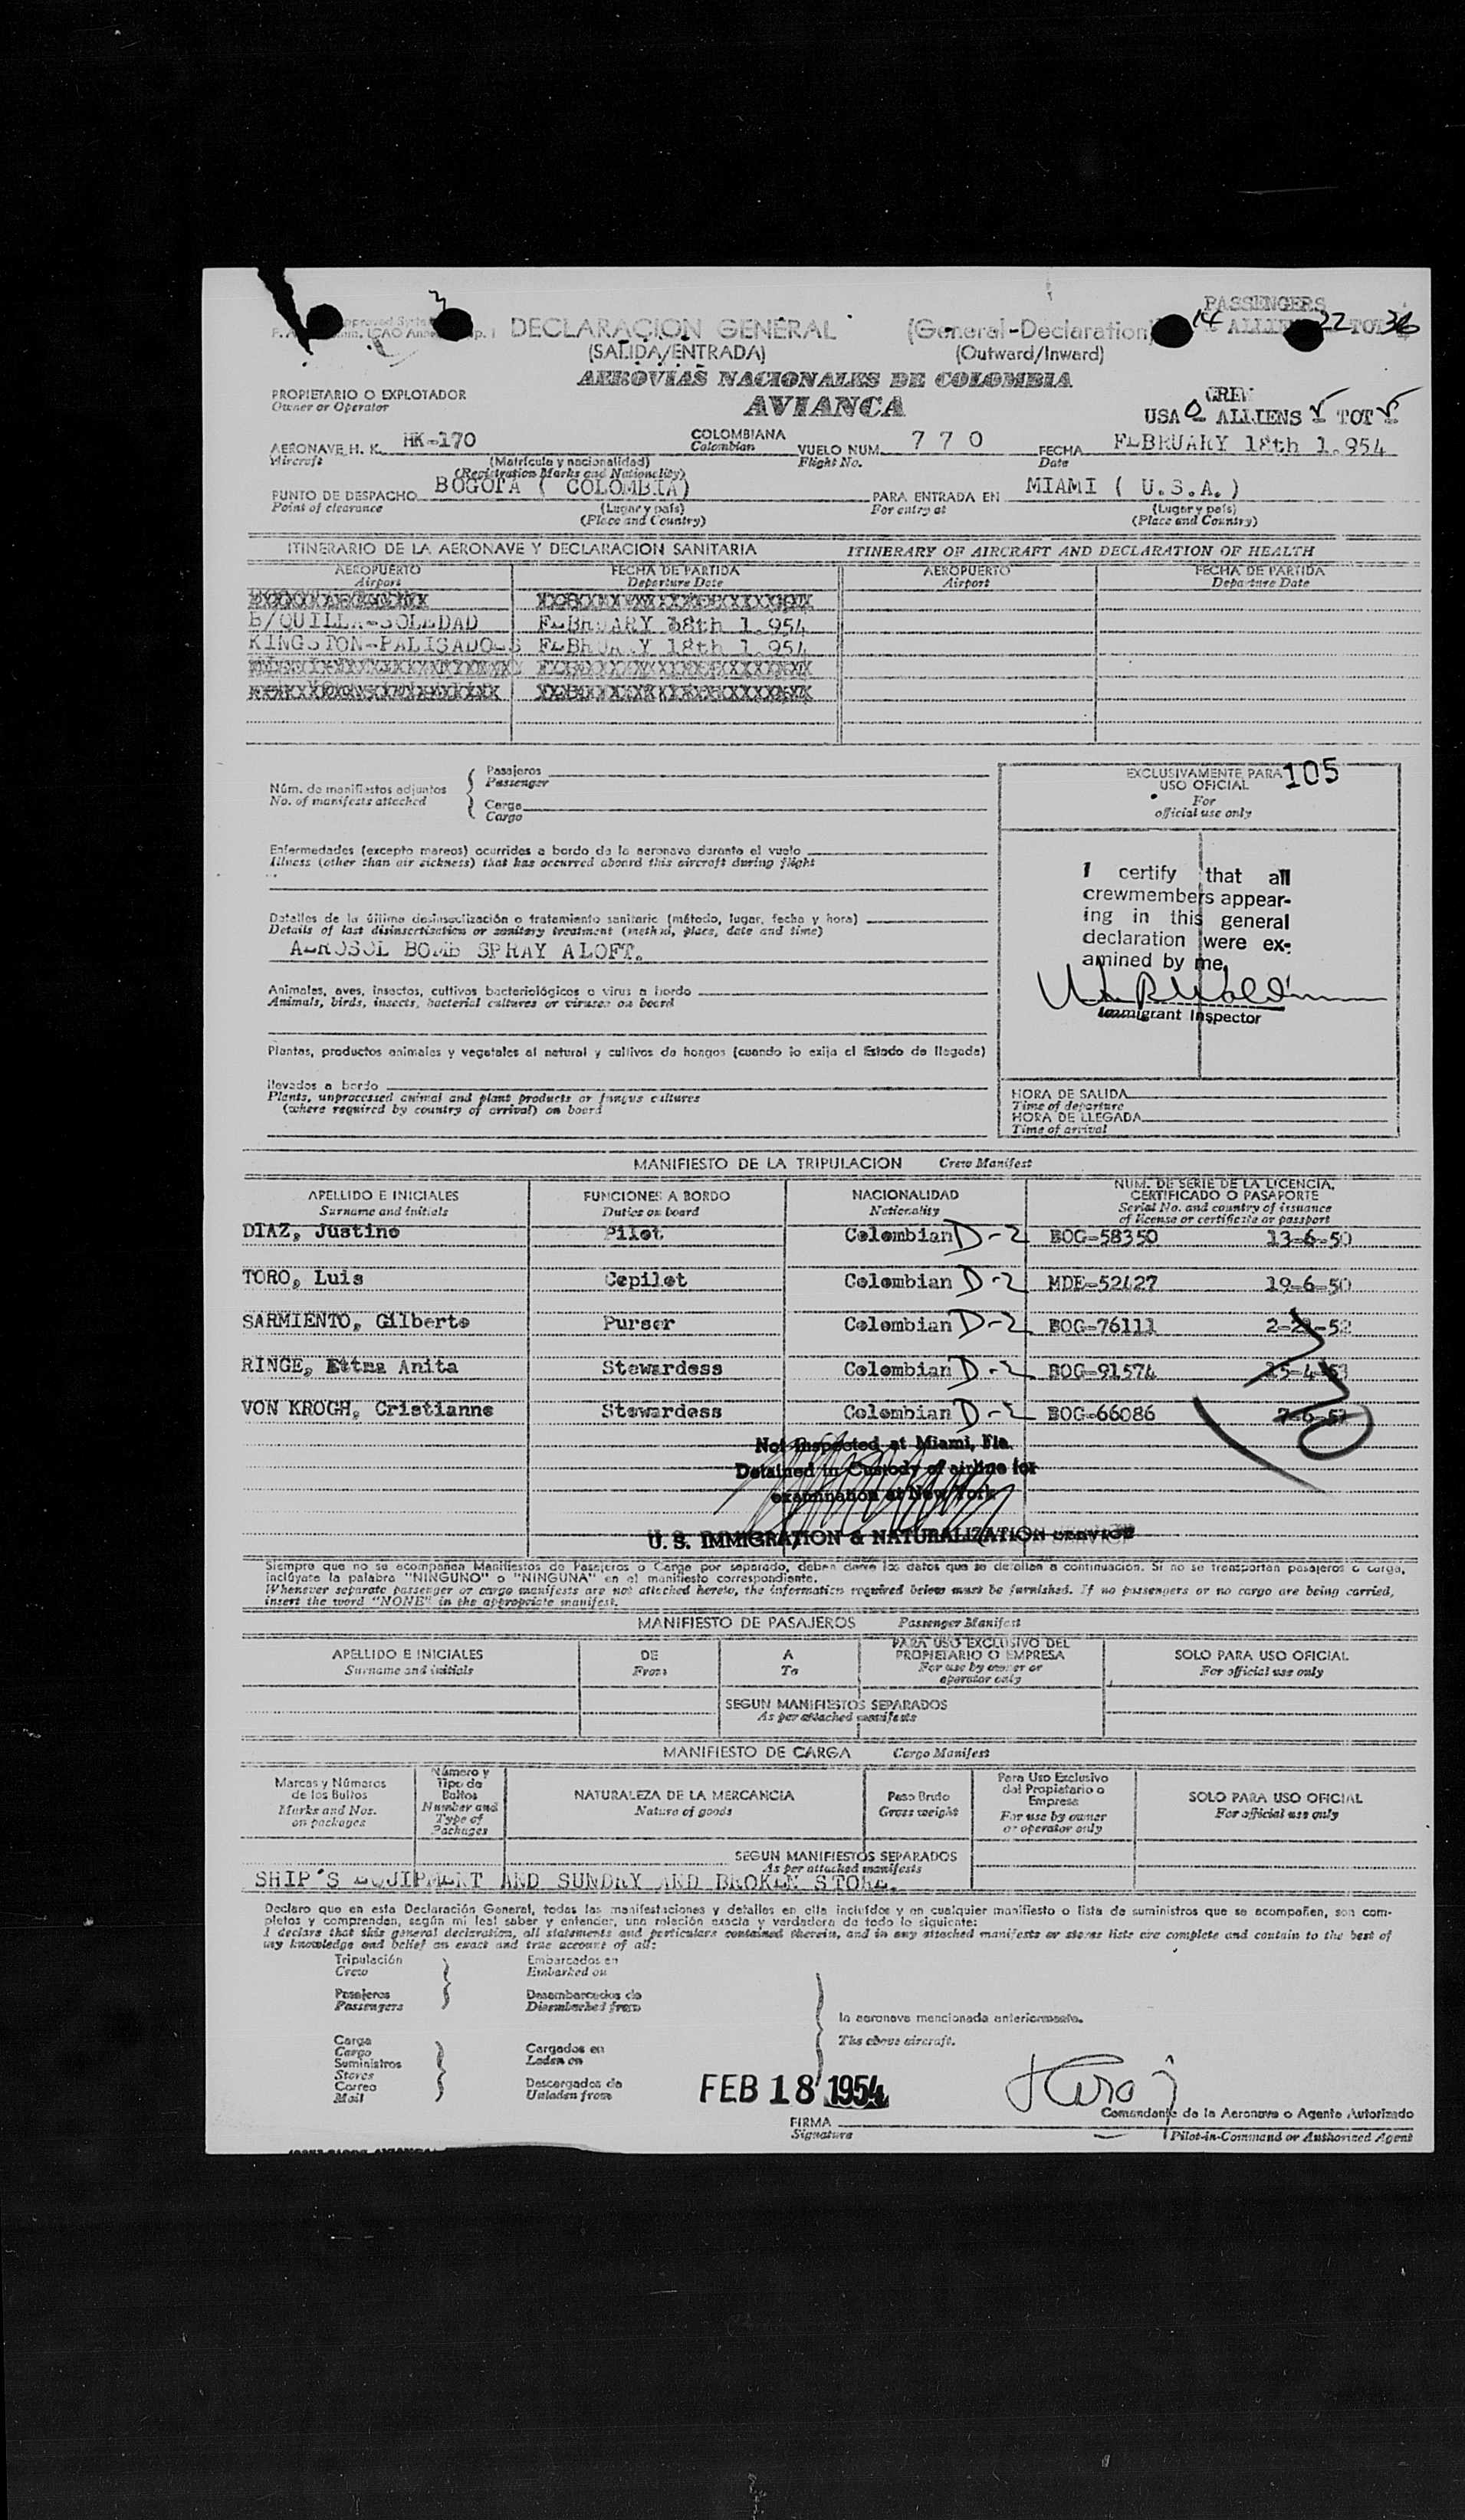 3
PASSENGERS
14 ALLIENS 22 TOT 36
DECLARACION GENERAL (General-Declaration)
(SALIDA/ENTRADA) (Outward/Inward)
AEROVIAS NACIONALES DE COLOMBIA
AVIANCA
PROPIETARIO O EXPLOTADOR
Owner or Operator
CREW
USA 0 ALLIENS 5 TOT 5
AERONAVE H. K. HK-170 COLOMBIANA VUELO NUM. 770 FECHA FEBRUARY 18th 1.954
Aircraft (Matrícula y nacionalidad) Colombian Flight No. Date
(Registration Marks and Nationality)
PUNTO DE DESPACHO BOGOTA ( COLOMBIA) PARA ENTRADA EN MIAMI ( U.S.A.)
Point of clearance (Lugar y país) For entry at (Lugar y país)
(Place and Country) (Place and Country)
ITINERARIO DE LA AERONAVE Y DECLARACION SANITARIA ITINERARY OF AIRCRAFT AND DECLARATION OF HEALTH
AEROPUERTO FECHA DE PARTIDA AEROPUERTO FECHA DE PARTIDA
Airport Departure Date Airport Departure Date
B/QUILLA-SOLEDAD FEBRUARY 18th 1.954
KINGSTON-PALISADOES FEBRUARY 18th 1.954
Núm. de manifiestos adjuntos
No. of manifests attached
Pasajeros
Passenger
Carga
Cargo
EXCLUSIVAMENTE PARA 105
USO OFICIAL
For
official use only
Enfermedades (excepto mareos) ocurridas a bordo de la aeronave durante el vuelo
Illness (other than air sickness) that has occurred aboard this aircraft during flight
Detalles de la última desinsectización o tratamiento sanitario (método, lugar, fecha y hora)
Details of last disinsectization or sanitary treatment (method, place, date and time)
AEROSOL BOMB SPRAY ALOFT.
Animales, aves, insectos, cultivos bacteriológicos o virus a bordo
Animals, birds, insects, bacterial cultures or viruses on board
Plantas, productos animales y vegetales al natural y cultivos de hongos (cuando lo exija el Estado de llegada)
llevados a bordo
Plants, unprocessed animal and plant products or fungus cultures
(where required by country of arrival) on board
I certify that all
crewmembers appear-
ing in this general
declaration were ex-
amined by me.
Immigrant Inspector
HORA DE SALIDA
Time of departure
HORA DE LLEGADA
Time of arrival
MANIFIESTO DE LA TRIPULACION Crew Manifest
APELLIDO E INICIALES FUNCIONES A BORDO NACIONALIDAD NUM. DE SERIE DE LA LICENCIA,
CERTIFICADO O PASAPORTE
Surname and initials Duties on board Nationality Serial No. and country of issuance
of license or certificate or passport
DIAZ, Justino Pilot Colombian D-2 BOG-58350 13-6-50
TORO, Luis Copilot Colombian D-2 MDE-52427 19-6-50
SARMIENTO, Gilberto Purser Colombian D-2 BOG-76111
RINGE, Ettna Anita Stewardess Colombian D-2 BOG-91574 15-4-53
VON KROGH, Cristianne Stewardess Colombian D-2 BOG-66086
Not Inspected at Miami, Fla.
Detained in Custody of airline for
examination at New York
U. S. IMMIGRATION & NATURALIZATION SERVICE
Siempre que no se acompañen Manifiestos de Pasajeros o Carga por separado, deben darse los datos que se detallan a continuación. Si no se transportan pasajeros o carga,
inclúyase la palabra "NINGUNO" o "NINGUNA" en el manifiesto correspondiente.
Whenever separate passenger or cargo manifests are not attached hereto, the information required below must be furnished. If no passengers or no cargo are being carried,
insert the word "NONE" in the appropriate manifest.
MANIFIESTO DE PASAJEROS Passenger Manifest
APELLIDO E INICIALES DE A PARA USO EXCLUSIVO DEL SOLO PARA USO OFICIAL
PROPIETARIO O EMPRESA
Surname and initials From To For use by owner or For official use only
operator only
SEGUN MANIFIESTOS SEPARADOS
As per attached manifests
MANIFIESTO DE CARGA Cargo Manifest
Marcas y Números
de los Bultos
Marks and Nos.
on packages
Número y
Tipo de
Bultos
Number and
Type of
Packages
NATURALEZA DE LA MERCANCIA
Nature of goods
Peso Bruto
Gross weight
Para Uso Exclusivo
del Propietario o
Empresa
For use by owner
or operator only
SOLO PARA USO OFICIAL
For official use only
SEGUN MANIFIESTOS SEPARADOS
As per attached manifests
SHIP'S EQUIPMENT AND SUNDRY AND BROKEN STORE.
Declaro que en esta Declaración General, todas las manifestaciones y detalles en ella incluídos y en cualquier manifiesto o lista de suministros que se acompañen, son com-
pletos y comprenden, según mi leal saber y entender, una relación exacta y verdadera de todo lo siguiente:
I declare that this general declaration, all statements and particulars contained therein, and in any attached manifests or stores lists are complete and contain to the best of
my knowledge and belief an exact and true account of all:
Tripulación
Crew
Pasajeros
Passengers
Embarcados en
Embarked on
Desembarcados de
Disembarked from
Carga
Cargo
Suministros
Stores
Correo
Mail
Cargados en
Laden on
Descargados de
Unladen from
la aeronave mencionada anteriormente.
The above aircraft.
FEB 18 1954
FIRMA
Signature
Comandante de la Aeronave o Agente Autorizado
Pilot-in-Command or Authorized Agent